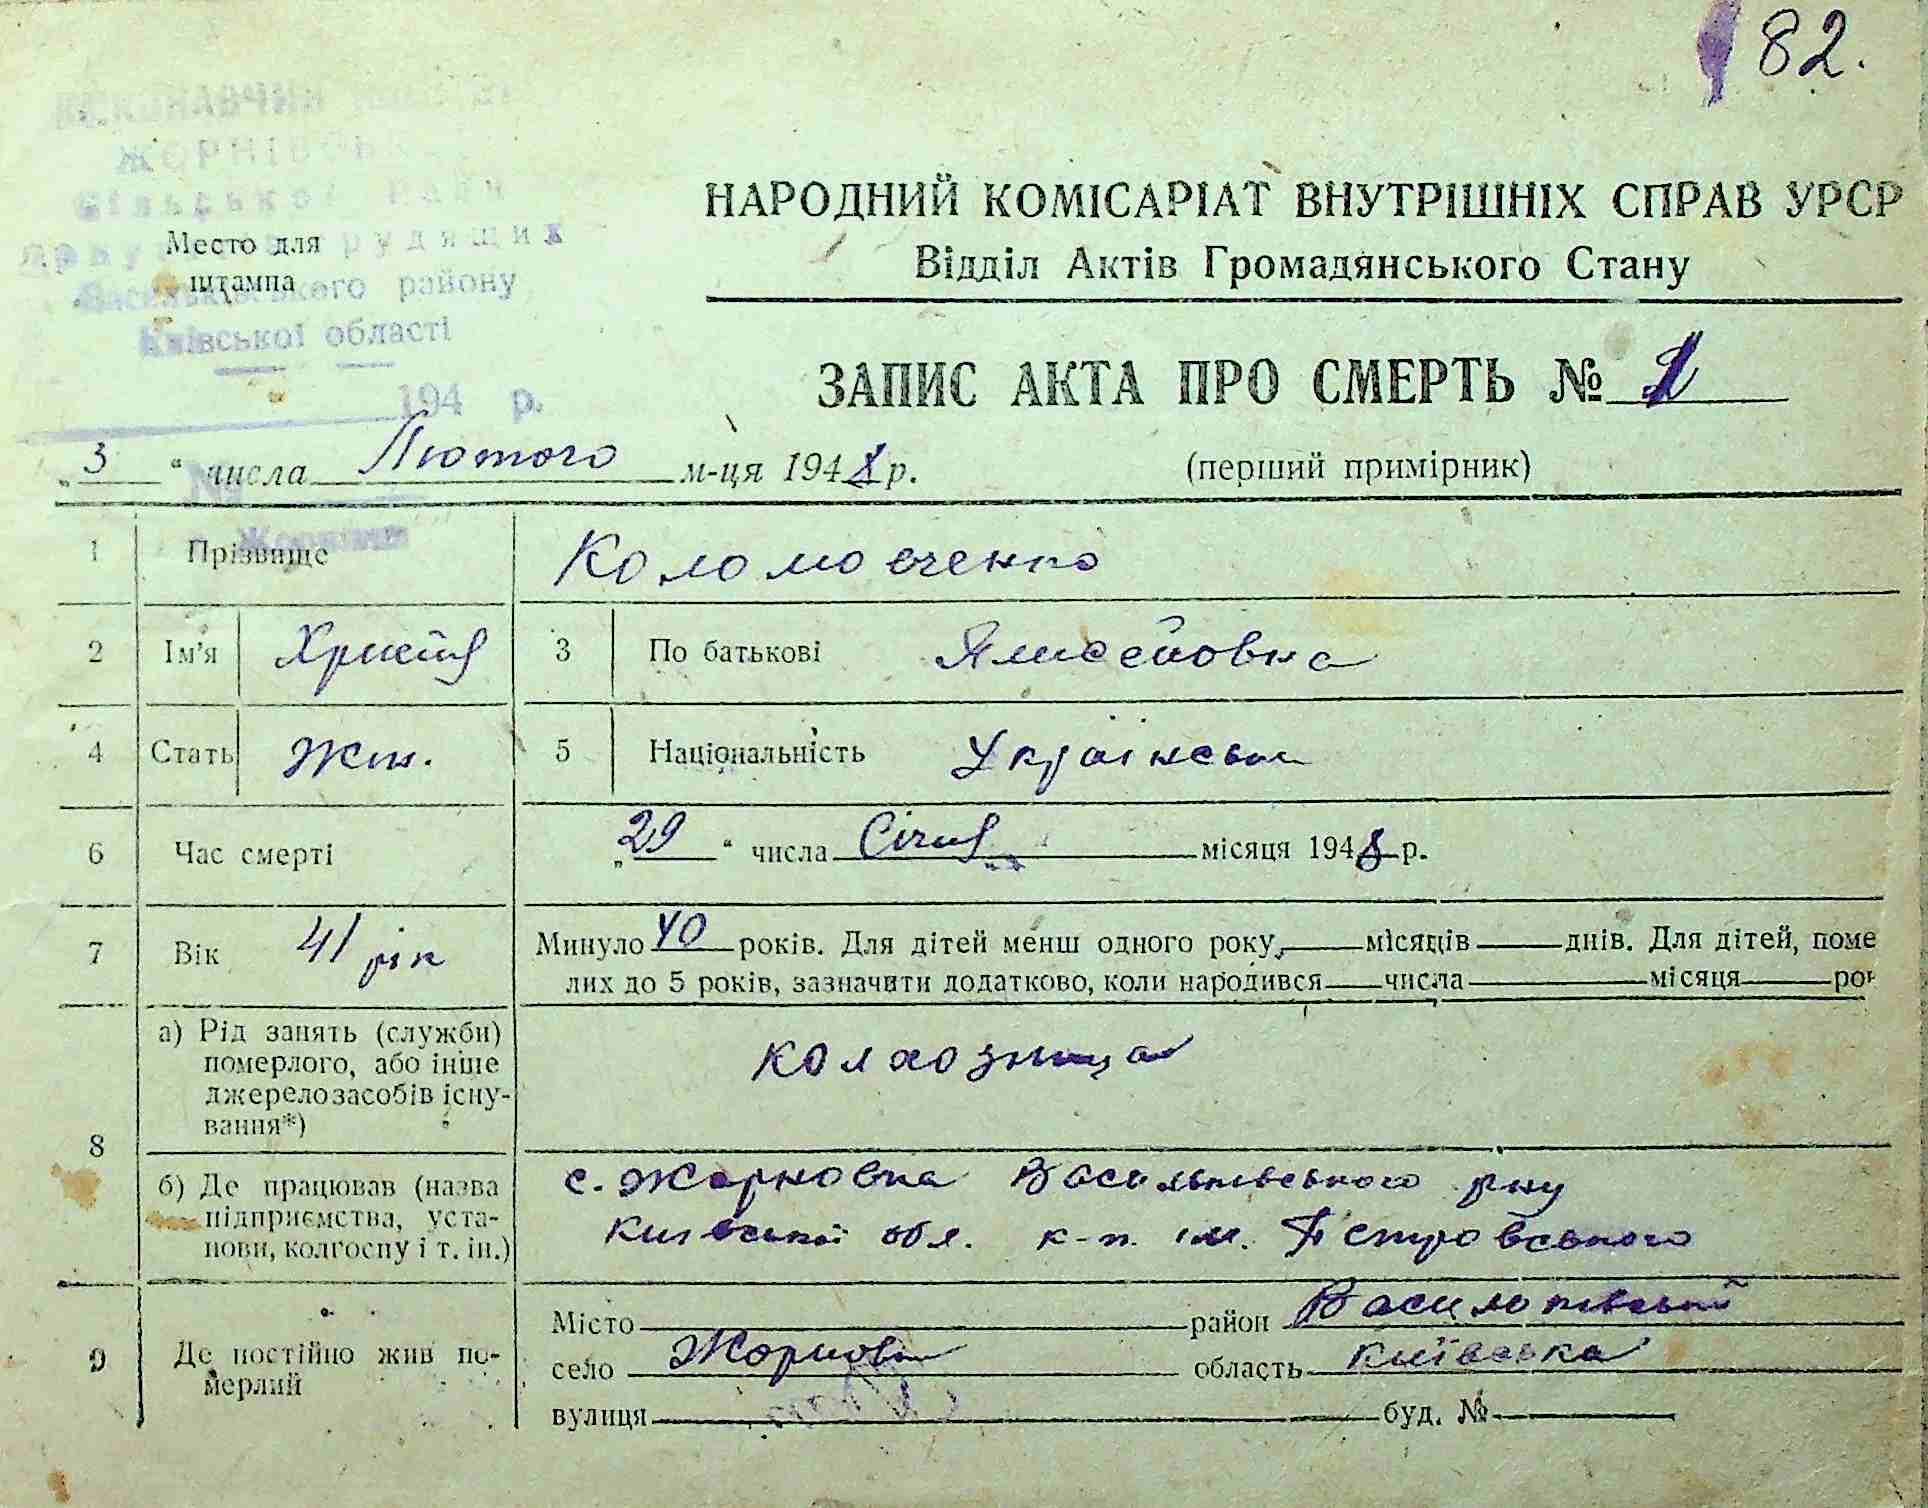 82.
ЖОРНІВСЬК
Сільської Ради
трудящих
Васильківського району
Київської області
194 р.
№
Место для
штампа
НАРОДНИЙ КОМІСАРІАТ ВНУТРІШНІХ СПРАВ УРСР
Відділ Актів Громадянського Стану
ЗАПИС АКТА ПРО СМЕРТЬ №
„3“ числа Лютого м-ця 1948 р. (перший примірник)
1 Прізвище Коломовченко
2 Ім'я Христя 3 По батькові
4 Стать Жін. 5 Національність Українська
6 Час смерті „29“ числа Січня місяця 1948 р.
7 Вік 41 рік Минуло 40 років. Для дітей менш одного року, місяців днів. Для дітей, поме
лих до 5 років, зазначити додатково, коли народився числа місяця рок
8 а) Рід занять (служби)
померлого, або інше
джерело засобів існу-
вання*)
колхозница
б) Де працював (назва
підприємства, уста-
нови, колгоспу і т. ін.)
с. Жорновка Васильківського р-ну
Київської обл. к-п. ім. Петровського
9 Де постійно жив по-
мерлий
Місто район Васильківський
село Жорновка область Київська
вулиця буд. №